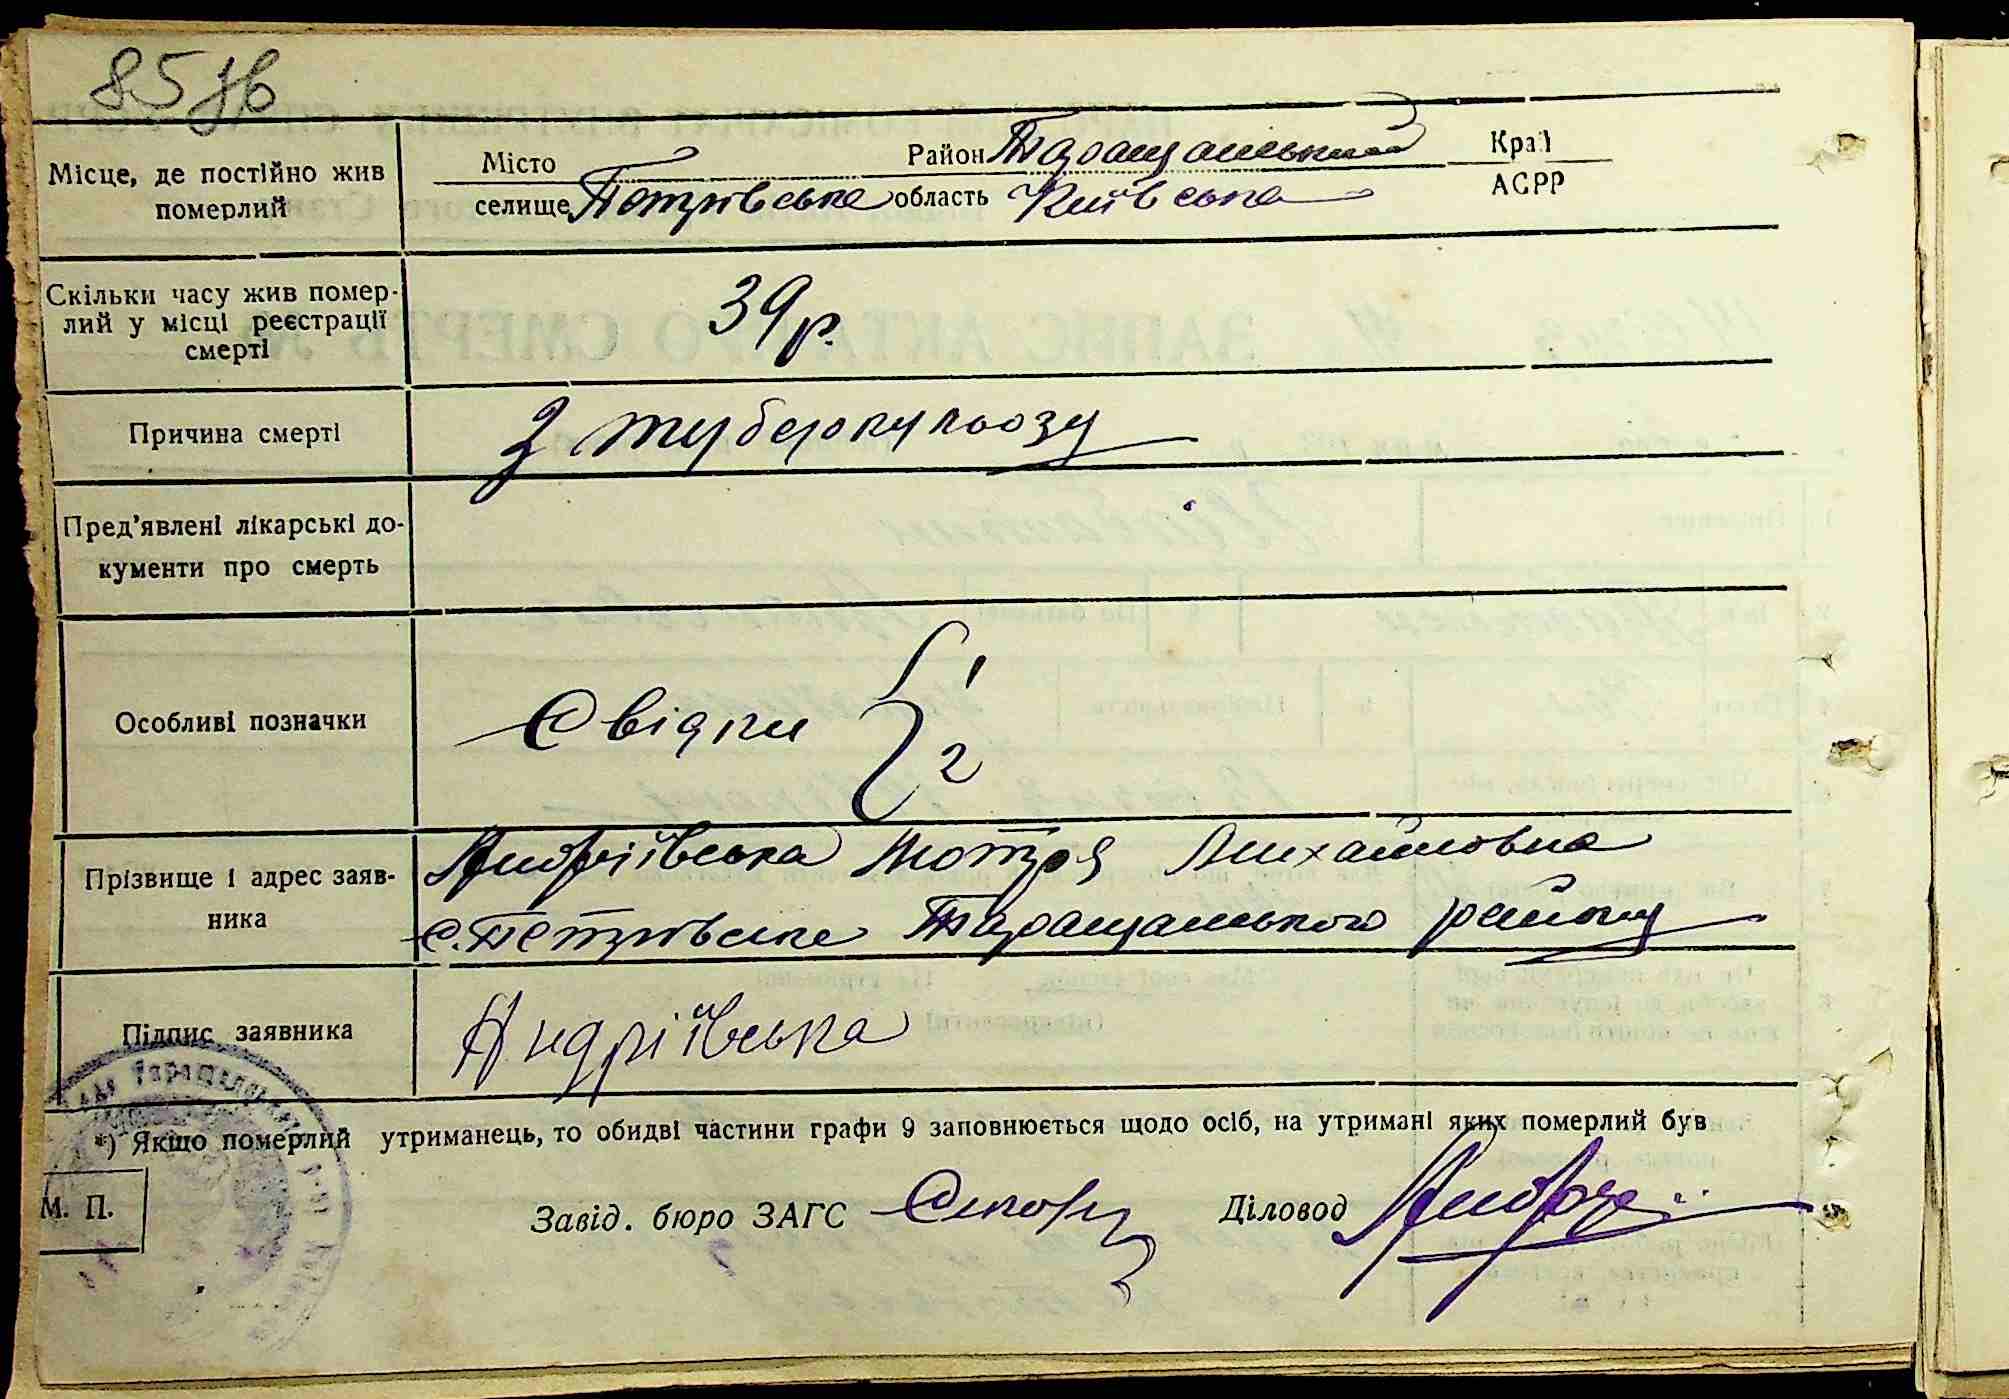 85 зв
Місце, де постійно жив померлий
Місто Район Таращанський Край
селище Петрівське область Київська АСРР
Скільки часу жив померлий у місці реєстрації смерті
39 р.
Причина смерті
З туберкульозу
Пред'явлені лікарські документи про смерть
Особливі позначки
Свідки { 1
2
Прізвище і адрес заявника
Андріївська Мотря Михайловна
с. Петрівське Таращанського району
Підпис заявника
Андріївська
*) Якщо померлий утриманець, то обидві частини графи 9 заповнюється щодо осіб, на утримані яких померлий був
М. П.
Завід. бюро ЗАГС
Діловод